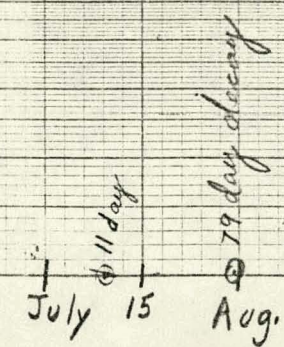 11 day
day decay
July 15 Aug.